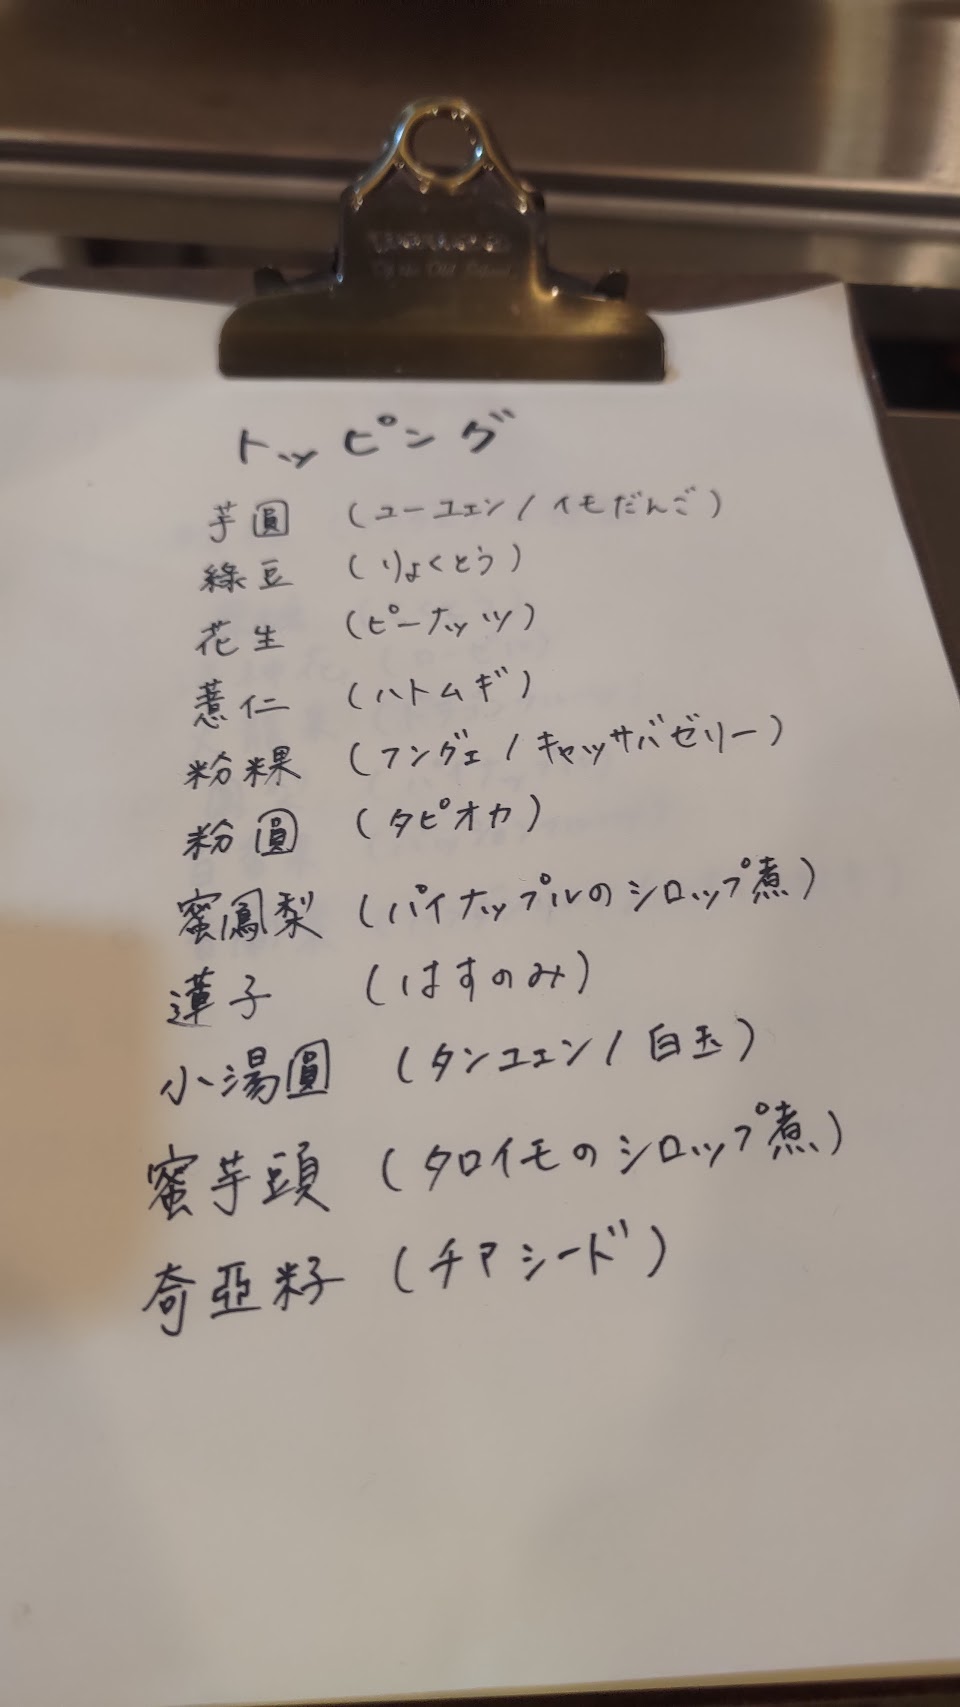 トッピング
芋圓 (ユーユェン/イモだんご)
綠豆 (りょくとう)
花生 (ピーナッツ)
薏仁 (ハトムギ)
粉粿 (フングェ/キャッサバゼリー)
粉圓 (タピオカ)
蜜鳳梨 (パイナップルのシロップ煮)
蓮子 (はすのみ)
小湯圓 (タンユェン/白玉)
蜜芋頭 (タロイモのシロップ煮)
奇亞籽 (チアシード)